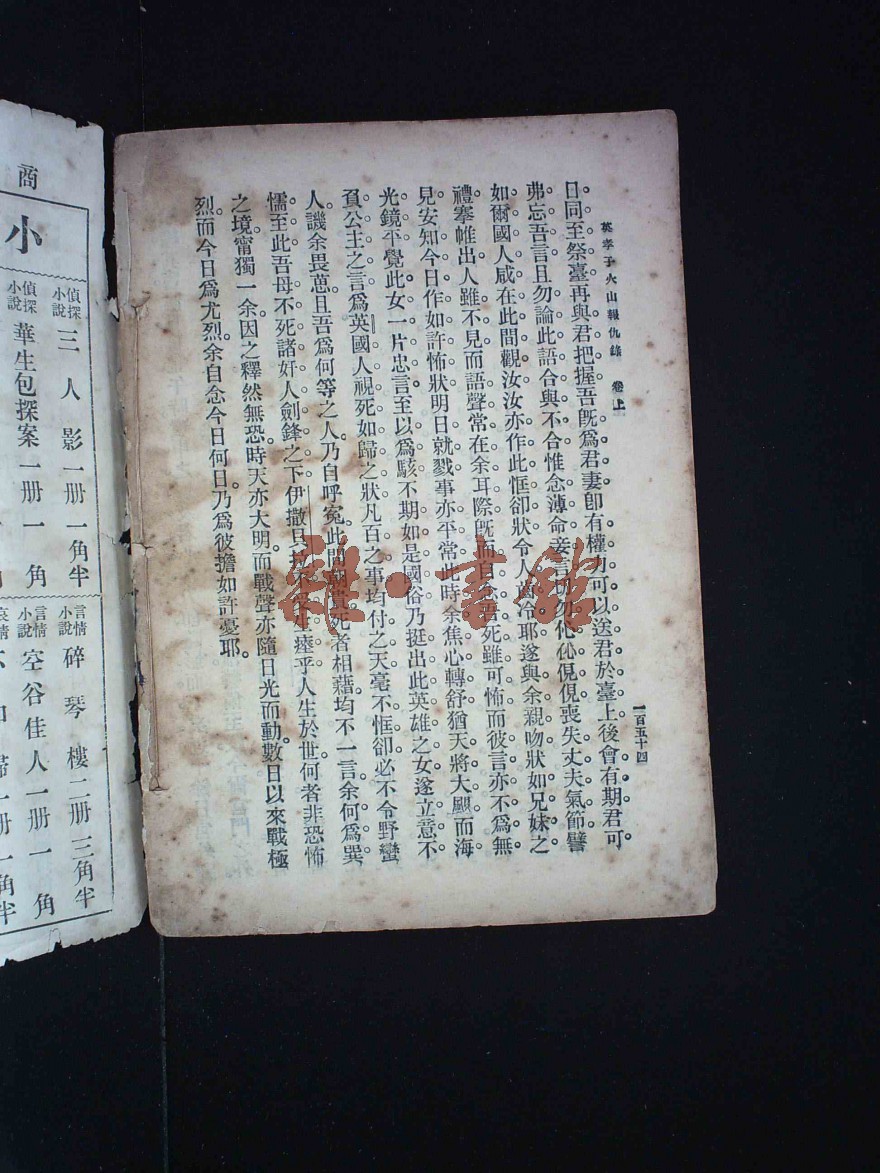 英孝子火山報仇錄 卷上
一百五十四
日同至祭臺再與君把握吾旣爲君妻卽有權力可以送君於臺上後會有期君可
弗忘吾言且勿論此語合與不合惟念薄命妾言切勿伈伈俔俔喪失丈夫氣節譬
如爾國人咸在此間觀汝汝亦作此恇卻狀令人齒冷耶遂與余親吻狀如兄妹之
禮搴帷出人雖不見而語聲常在余耳際旣而自念君死雖可怖而彼言亦不爲無
見安知今日作如許怖狀明日就戮事亦平常此時余焦心轉舒猶天將大颶而海
光鏡平覺此女一片忠言至以爲駭不期如是國俗乃挺出此英雄之女遂立意不
負公主之言爲英國人視死如歸之狀凡百之事均付之天毫不恇卻必不令野蠻
人譏余畏葸且吾爲何等之人乃自呼冤此間朝貴死者相藉均不一言余何爲巽
懦至此吾母不死諸奸人劍鋒之下伊撒貝 生瘞乎人生於世何者非恐怖
之境甯獨一余因之釋然無恐時天亦大明而戰聲亦隨日光而動數日以來戰極
烈而今日爲尤烈余自念今日何日乃爲彼擔如許憂耶
雜·書館
商
小
偵探小說 三人影 一册 一角半
偵探小說 華生包探案 一册 一角
言情小說 碎琴樓 二册 三角半
言情小說 空谷佳人 一册 一角
哀情 不如歸 一册 一角半